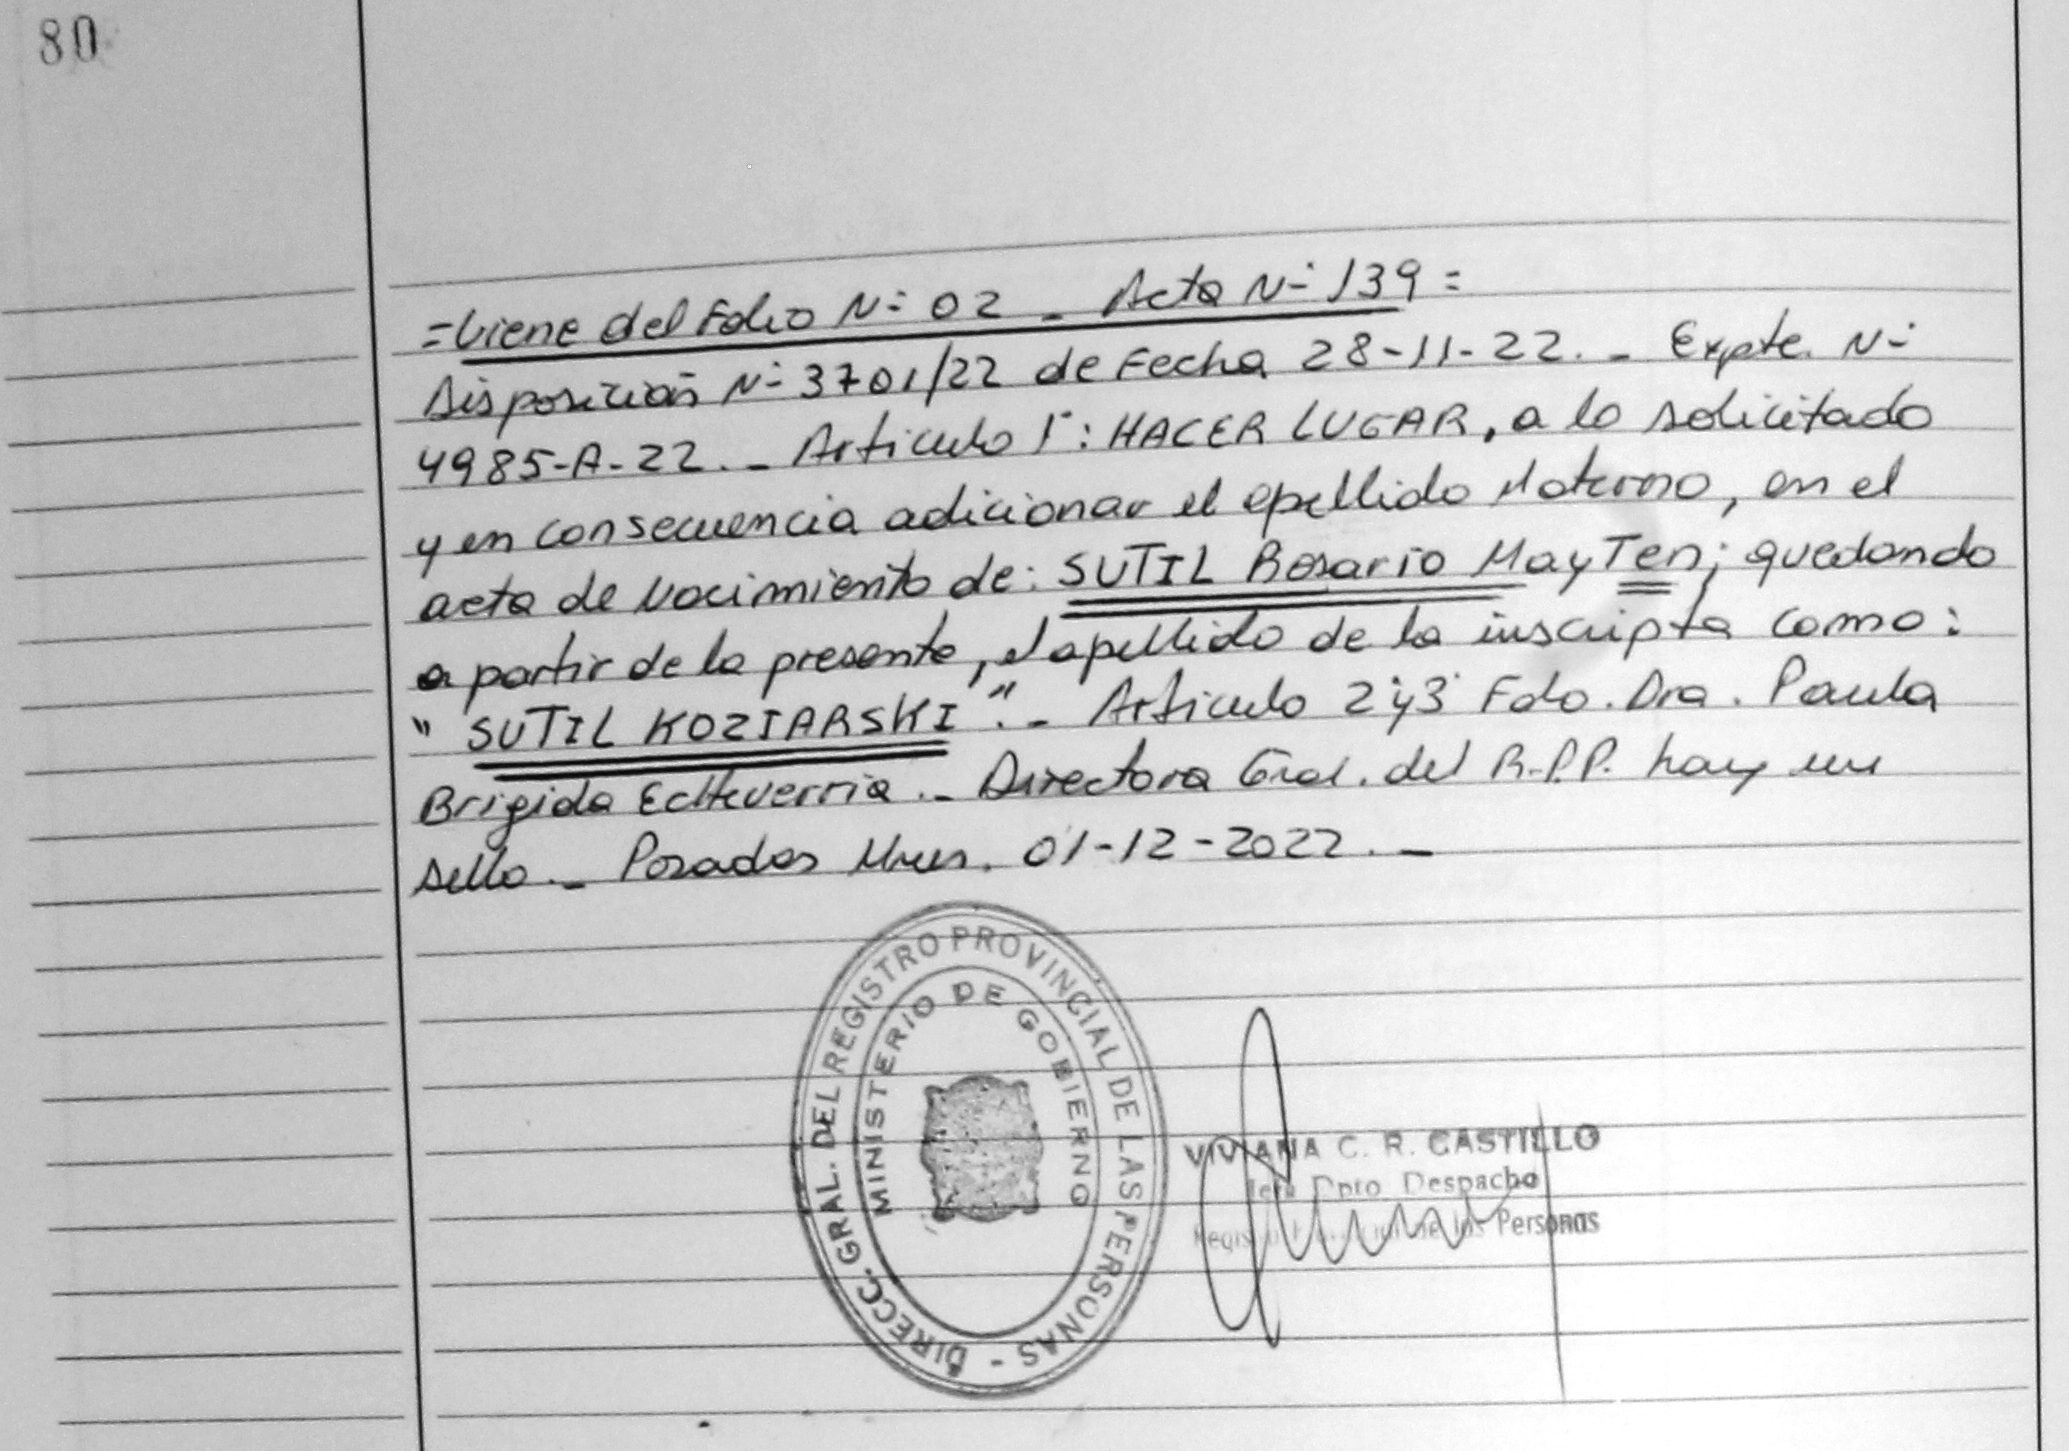 80
=Viene del Folio N° 02 _ Acta N° 139=
Disposición N° 3701/22 de Fecha 28-11-22._ Expte. N°
4985-A-22._ Articulo 1°: HACER LUGAR, a lo solicitado
y en consecuencia adicionar el apellido Materno, en el
acta de Nacimiento de: SUTIL Rosario MayTen; quedando
a partir de la presente, el apellido de la inscripta como:
" SUTIL KOZIARSKI"._ Articulo 2°y3° Fdo. Dra. Paula
Brigida Echeverria._ Directora Gral. del R.P.P. hay un
sello._ Posadas Mnes. 01-12-2022._
DIRECC. GRAL. DEL REGISTRO PROVINCIAL DE LAS PERSONAS -
MINISTERIO DE GOBIERNO
VIVIANA C. R. CASTILLO
Jefe Dpto Despacho
de las Personas